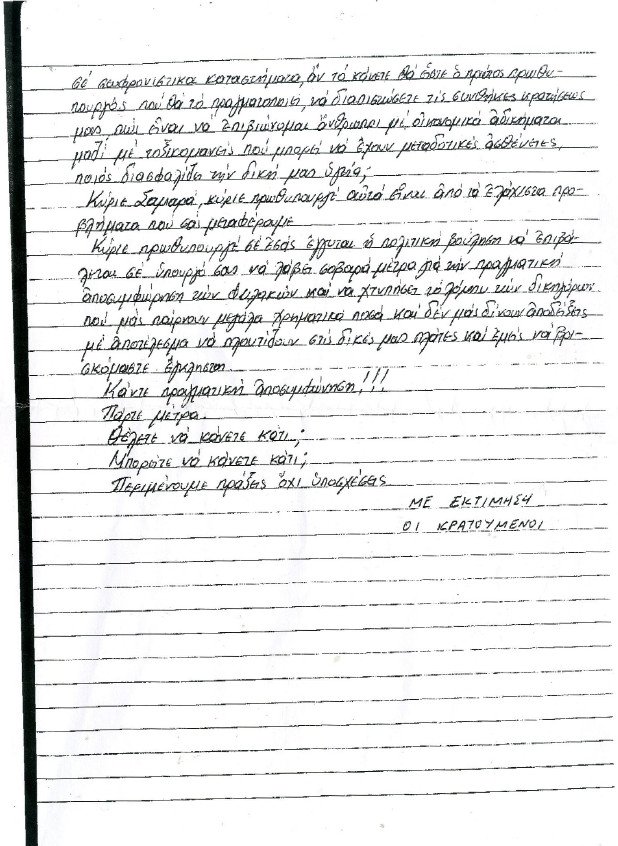 σέ σωφρονιστικα καταστήματα, ἄν τό κάνετε θά εἶστε ὁ πρῶτος πρωθυ-
πουργός πού θά τό πραγματοποιεῖ, νά διαπιστώσετε τίς συνθήκες κρατήσεως
μας, πώς εἶναι νά ἐπιβιώνομαι ἄνθρωποι μέ οἰκονομικά ἀδικήματα
μαζί μέ τοξικομανεῖς πού μπορεῖ νά ἔχουν μεταδοτικές ἀσθένειες,
ποιός διασφαλίζει τήν δική μας ὑγεία;
Κύριε Σαμαρά, κύριε πρωθυπουργέ αὐτά εἶναι ἀπό τά ἐλάχιστα προ-
βλήματα πού σας μεταφέραμε
Κύριε πρωθυπουργέ σέ ἐσάς ἔγκυται ἡ πολιτική βούληση νά ἐπιβά-
λεται σέ ὑπουργό σας νά λάβει σοβαρά μέτρα γιά τήν πραγματική
ἀποσυμφώρηση τῶν φυλακῶν καί να χτυπήσει το λόμπυ τῶν δικηγόρων
πού μᾶς παίρνουν μεγάλα χρηματικά ποσά καί δέν μας δίνουν ἀποδείξεις
μέ ἀποτέλεσμα νά πλουτίζουν στίς δικές μας πλάτες καί ἐμείς νά βρι-
σκόμαστε ἔγκλειστοι
Κάντε πραγματική ἀποσυμφώνηση!!!
Πάρτε μέτρα.
Θέλετε νά κάνετε κάτι;
Μπορείτε νά κάνετε κάτι;
Περιμένουμε πράξεις ὄχι ὑποσχέσεις
ΜΕ ΕΚΤΙΜΗΣΗ
ΟΙ ΚΡΑΤΟΥΜΕΝΟΙ